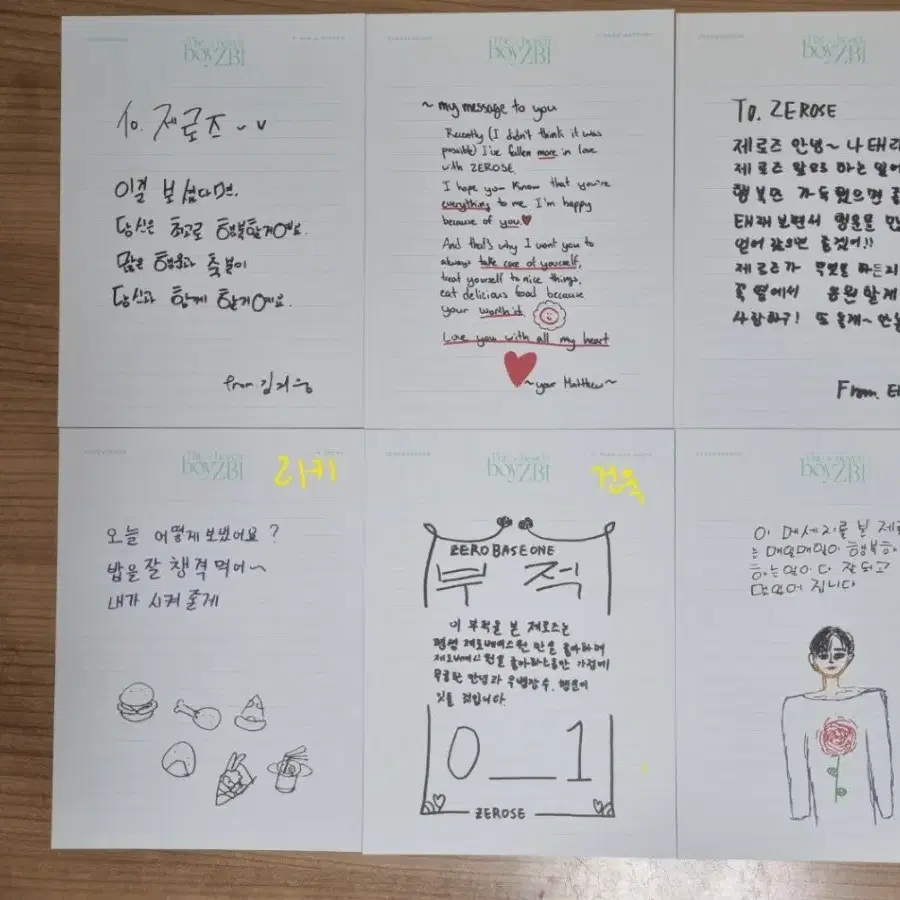 The boyz ZB1
To. 제로즈 ᵕ ᵕ
이걸 보셨다면.
당신은 최고로 행복할거에요.
많은 행운과 축복이
당신과 함께 할거에요.
from 김지웅
boy ZB1
~ my message to you
Recently (I didn't think it was
possible) I've fallen more in love
with ZEROSE.
I hope you know that you're
everything to me. I'm happy
because of you.♥
And that's why I want you to
always take care of yourself,
treat yourself to nice things,
eat delicious food because
your worth it.
Love you with all my heart
~your Matthew~
boy ZB1
To. ZEROSE
제로즈 안녕~ 나 태래
제로즈 앞으로 하는 일에
행복만 가득했으면
태래 보면서 힘을
얻어 갔으면 좋겠어!!
제로즈가 무엇을 하든지
꼭 옆에서 응원할게
사랑하구! 또 올게~
From.
boy ZB1
리키
오늘 어떻게 보냈어요?
밥을 잘 챙겨 먹어~
내가 시켜 줄게
boy ZB1
건욱
ZEROBASEONE
부 적
이 부적을 본 제로즈는
평생 제로베이스원 만을 좋아하며
제로베이스원을 좋아하는동안 가정에
무궁한 안녕과 행운이
깃들 것입니다.
0 _ 1
ZEROSE
boy ZB1
이 메세지를 본 제로
는 매일매일이 행복하
하는일이 다 잘되고